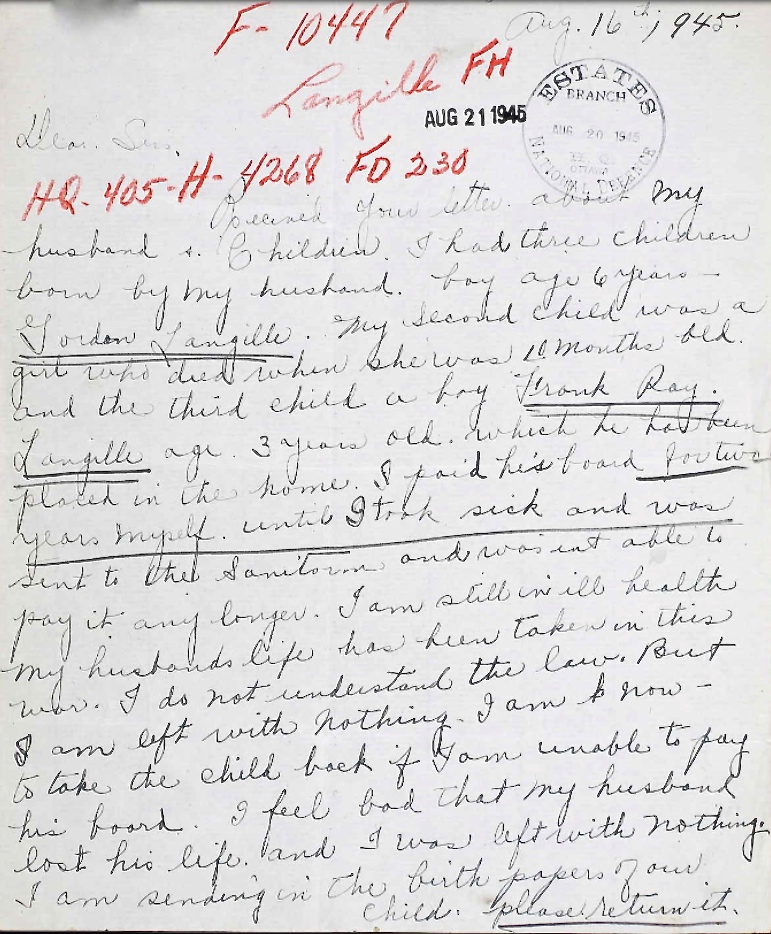 F- 10447
Aug. 16th, 1945.
Langille FH
AUG 21 1945
ESTATES
BRANCH
AUG 20 1945
OTTAWA
NATIONAL DEFENCE
Dear Sirs,
HQ-405-H-4268 FD 230
Received your letter. about my
husband &. Children. I had three children
born by my husband. boy age 6 years-
Gordon Langille. My second child was a
girl who died when she was 10 months old.
and the third child a boy Frank Ray.
Langille age. 3 years old. which he has been
placed in the home. I paid he's board for two
years myself. until I took sick and was
sent to the Sanitorm and was int able to
pay it any longer. I am still in ill health
my husbands life has been taken in this
war. I do not understand the law. But
I am left with nothing. I am know-
to take the child back if I am unable to pay
his board. I feel bad that my husband
lost his life. and I was left with nothing.
I am sending in the birth papers of our
child. please return it.